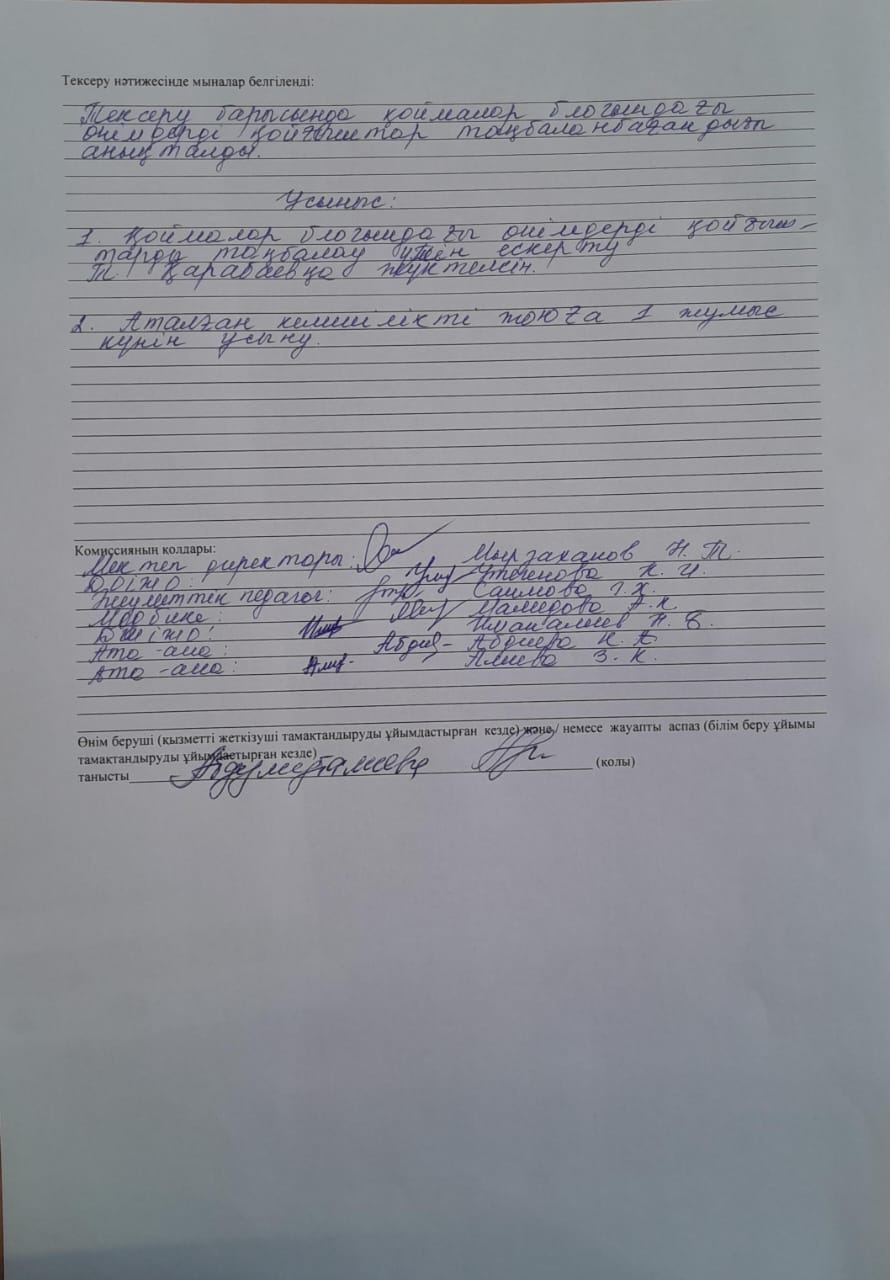 Тексеру нәтижесінде мыналар белгіленді:
Тексеру барысында қоймалар блогындағы
өнімдерді қойғыштар таңбаланбағандығы
анықталды.
Ұсыныс:
1. Қоймалар блогындағы өнімдерді қойғыш-
тарды таңбалау үшін ескерту
Т. Қарабаевқа жүктелсін.
2. Аталған кемшілікті жоюға 1 жұмыс
күнін ұсыну.
Комиссияның қолдары:
Мектеп директоры: Мырзаханов Н. Т.
Утегенова К. И.
Әлеуметтік педагог: Саимова Г. Х.
Медбике: Мамедова А. К.
Иманалиев Н. Б.
Ата-ана: Абдиева К. А.
Ата-ана: Алиева З. К.
Өнім беруші (қызметті жеткізуші тамақтандыруды ұйымдастырған кезде) және/ немесе жауапты аспаз (білім беру ұйымы
тамақтандыруды ұйымдастырған кезде)
танысты (қолы)